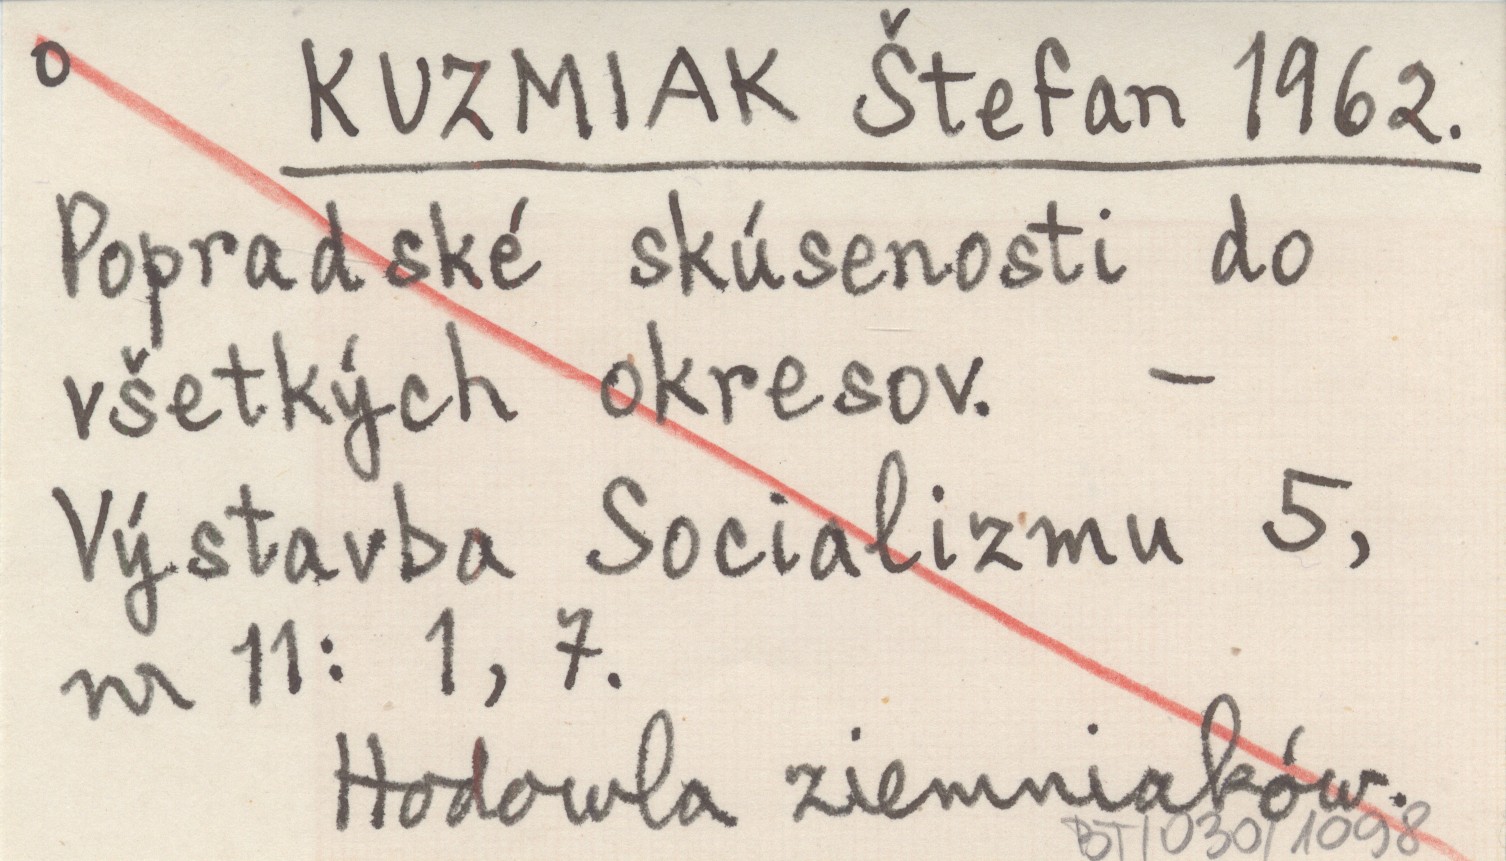 o KUZMIAK Štefan 1962.
Popradské skúsenosti do
všetkých okresov. –
Výstavba Socializmu 5,
nr 11: 1, 7.
Hodowla ziemniaków.
BOT/030/1098